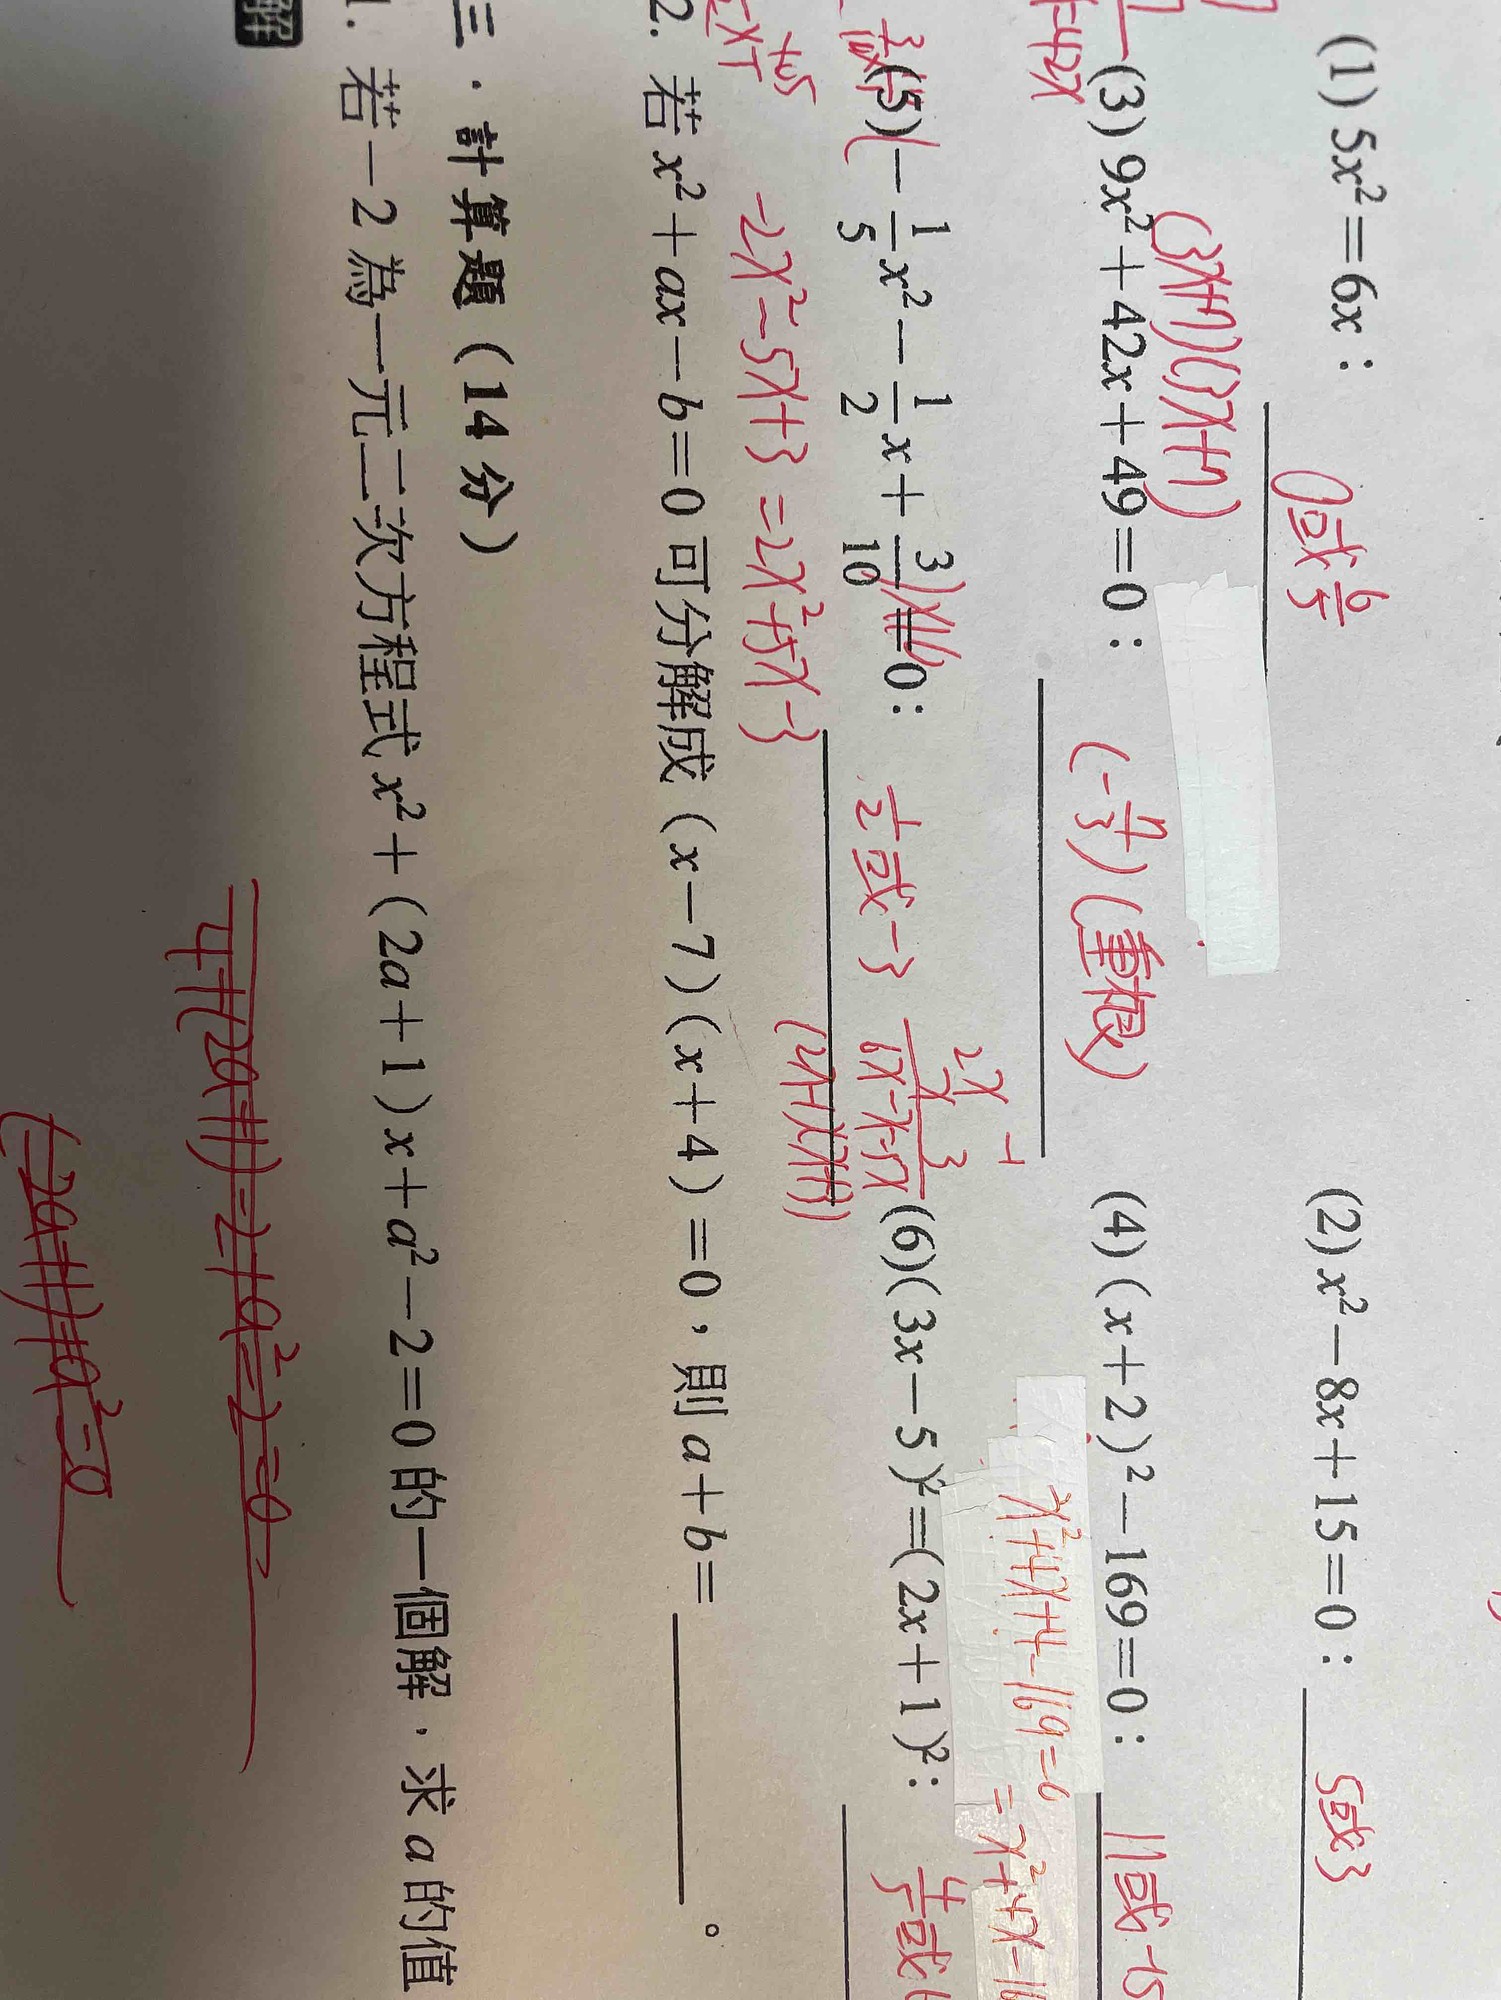 (1) 5x²=6x：
0或6/5
(2) x²－8x＋15=0：
5或3
(3x+7)(3x+7)
(3) 9x²＋42x＋49=0：
(-7/3)(重根)
(4)（x＋2）²－169=0：
11或-15
x²+4x+4-169=0
=x²+4x-16
2x -1
x 3
6x-x=5x
(5)(－1/5x²－1/2x＋3/10)x10=0：
1/2或-3
(6)(3x－5)²=(2x＋1)²：
4/5或
-2x²-5x+3=2x²+5x-3
(2x-1)(x+3)
2. 若 x²＋ax－b=0 可分解成（x－7）（x＋4）=0，則 a＋b=＿＿＿＿＿。
三．計算題（14 分）
1. 若－2 為一元二次方程式 x²＋（2a＋1）x＋a²－2=0 的一個解，求 a 的值
解
4+(2a+1)-2+a²-2=0
(-2a+1)+a²=0